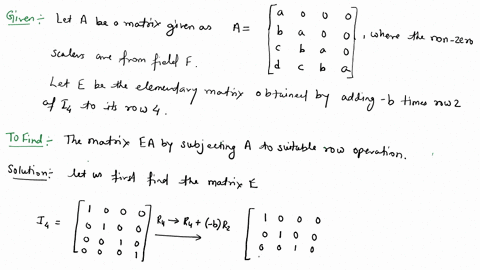 Given :- Let A be a matrix given as A = [ a 0 0 0 ; b a 0 0 ; c b a 0 ; d c b a ] , where the non-zero
scalers are from field F.
Let E be the elementary matrix obtained by adding -b times row 2
of I4 to its row 4.
To Find :- The matrix EA by subjecting A to suitable row operation.
Solution:- let us first find the matrix E
I4 = [ 1 0 0 0 ; 0 1 0 0 ; 0 0 1 0 ; 0 0 0 1 ] R4 → R4 + (-b) R2 [ 1 0 0 0 ; 0 1 0 0 ; 0 0 1 0